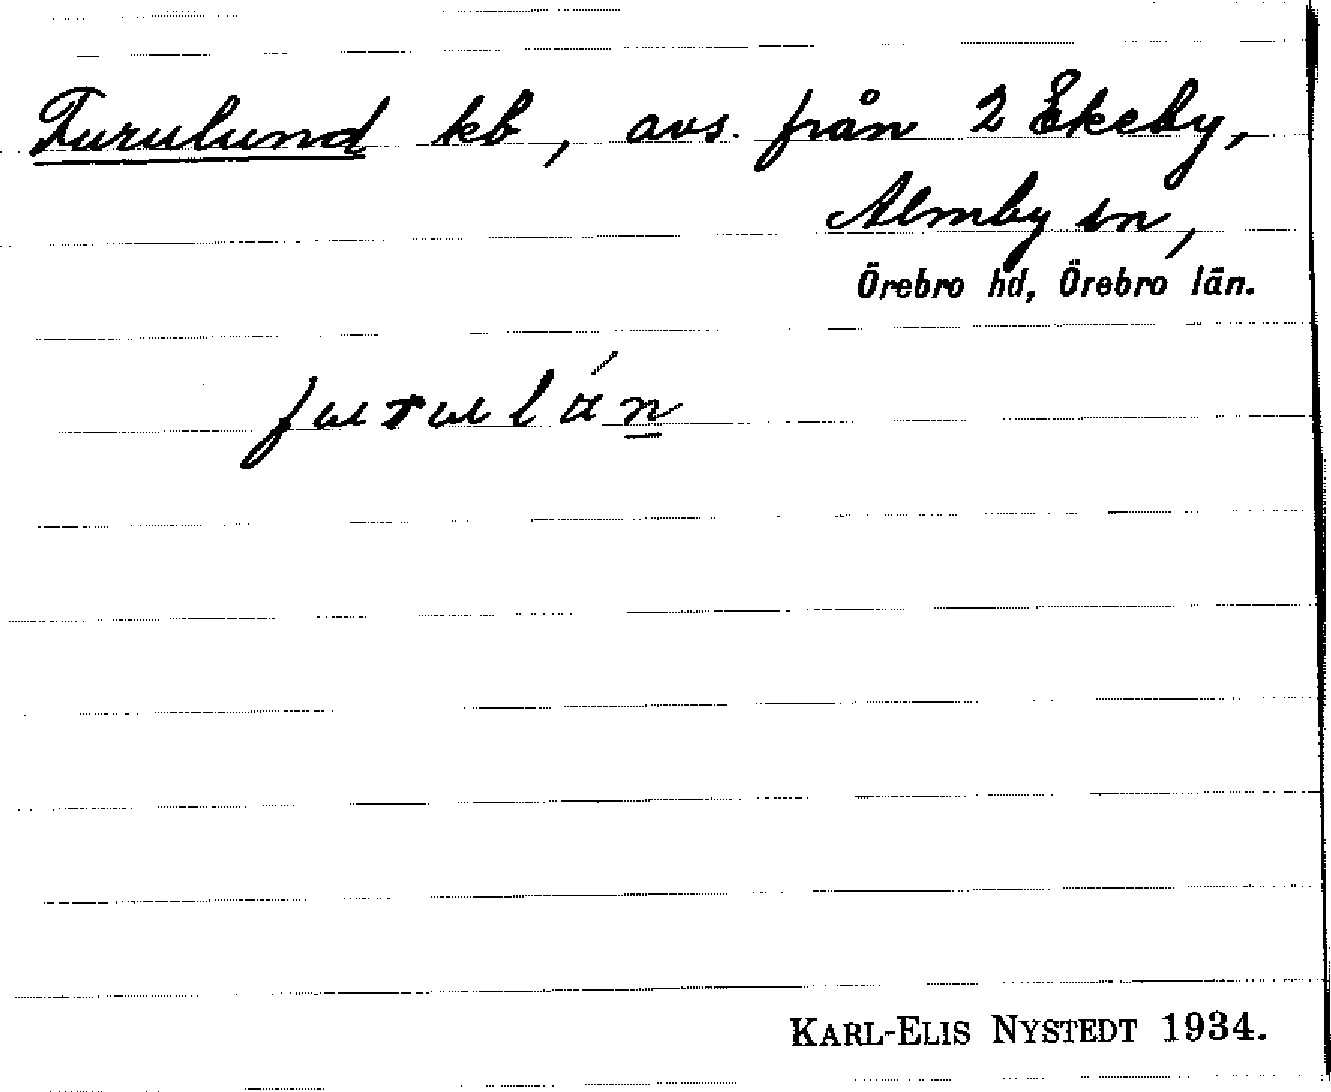 Furulund kb, avs. från 2 Ekeby,
Almby sn,
Örebro hd, Örebro län.
KARL-ELIS NYSTEDT 1934.